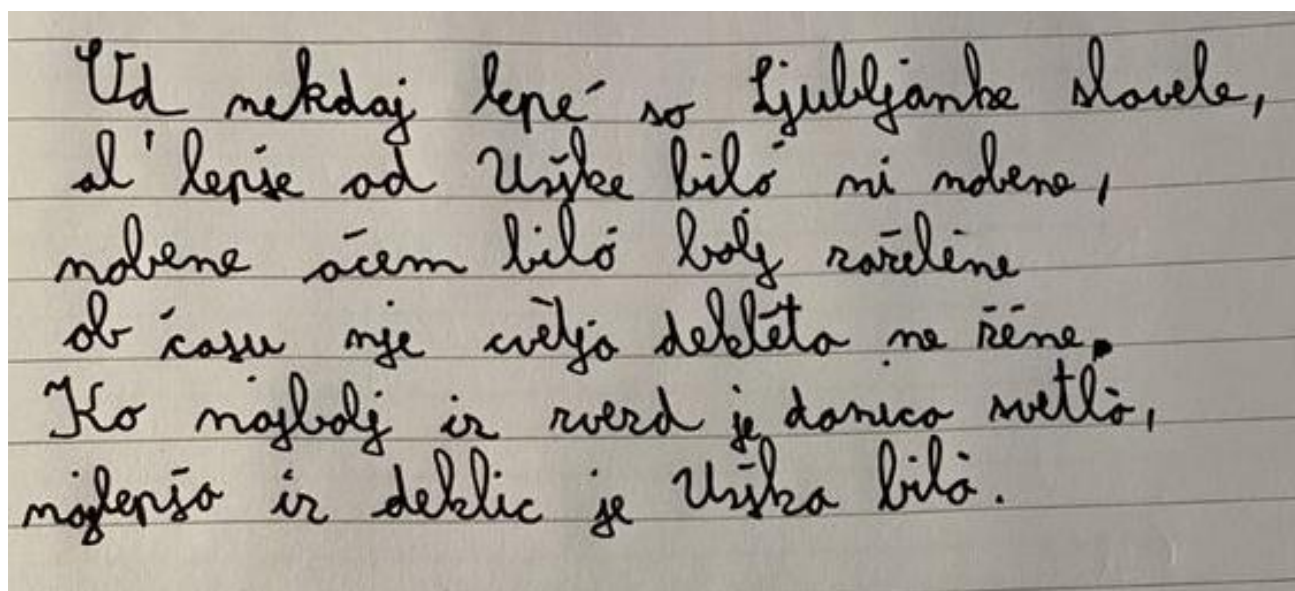 Od nekdaj lepé so Ljubljanke slovele,
al' lepše od Urške biló ni nobene,
nobene očem biló bolj zaželêne
ob času nje cvêtja deklêta ne žêne.
Ko najbolj iz zvezd je danica svetlà,
najlepša iz deklic je Urška bilà.